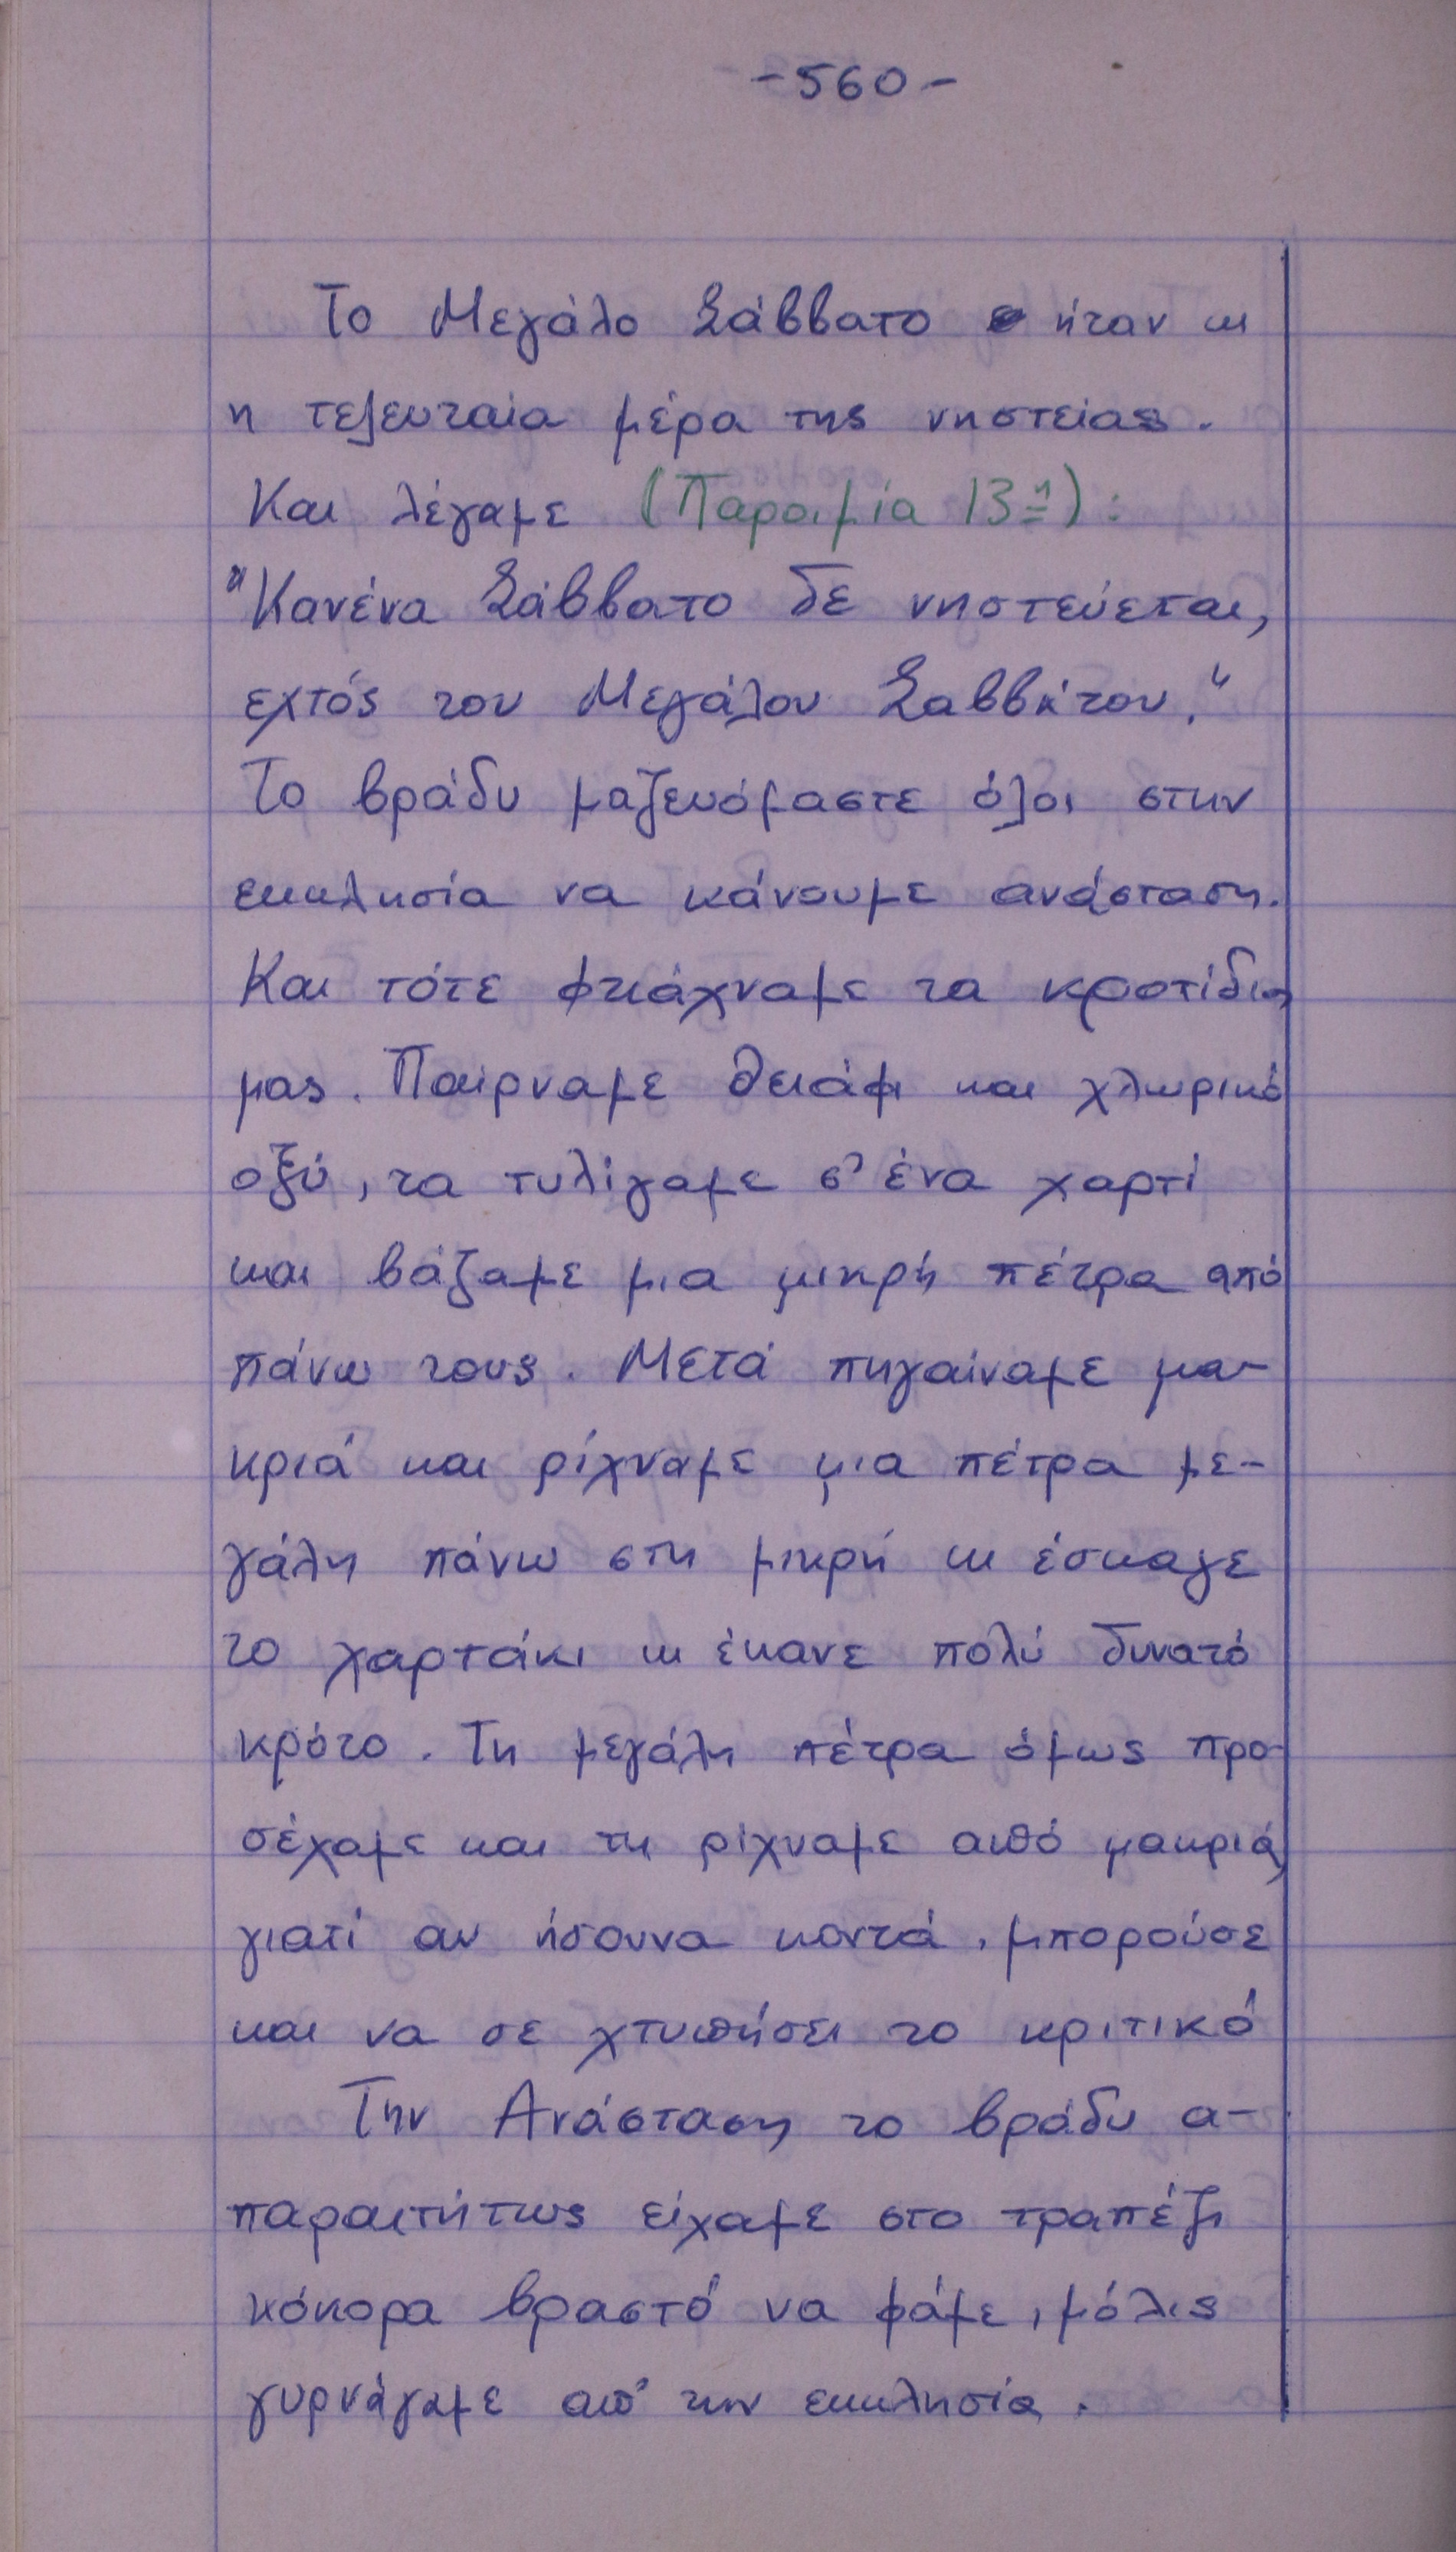 -560-
Το Μεγάλο Σάββατο ήταν κι
η τελευταία μέρα της νηστείας.
Και λέγαμε (Παροιμία 13η):
"Κανένα Σάββατο δε νηστεύεται,
εχτός του Μεγάλου Σαββάτου."
Το βράδυ μαζευόμαστε όλοι στην
εκκλησία να κάνουμε ανάσταση.
Και τότε φκιάχναμε τα κροτίδια
μας. Παίρναμε θειάφι και χλωρικό
οξύ, τα τυλίγαμε σ' ένα χαρτί
και βάζαμε μια μικρή πέτρα από
πάνω τους. Μετά πηγαίναμε μα-
κριά και ρίχναμε μια πέτρα με-
γάλη πάνω στη μικρή κι έσκαγε
το χαρτάκι κι έκανε πολύ δυνατό
κρότο. Τη μεγάλη πέτρα όμως προ-
σέχαμε και τη ρίχναμε από μακριά,
γιατί αν ήσουνα κοντά, μπορούσε
και να σε χτυπήσει το κριτικό
Την Ανάσταση το βράδυ α-
παραιτήτως είχαμε στο τραπέζι
κόκορα βραστό να φάμε, μόλις
γυρνάγαμε απ' την εκκλησία.